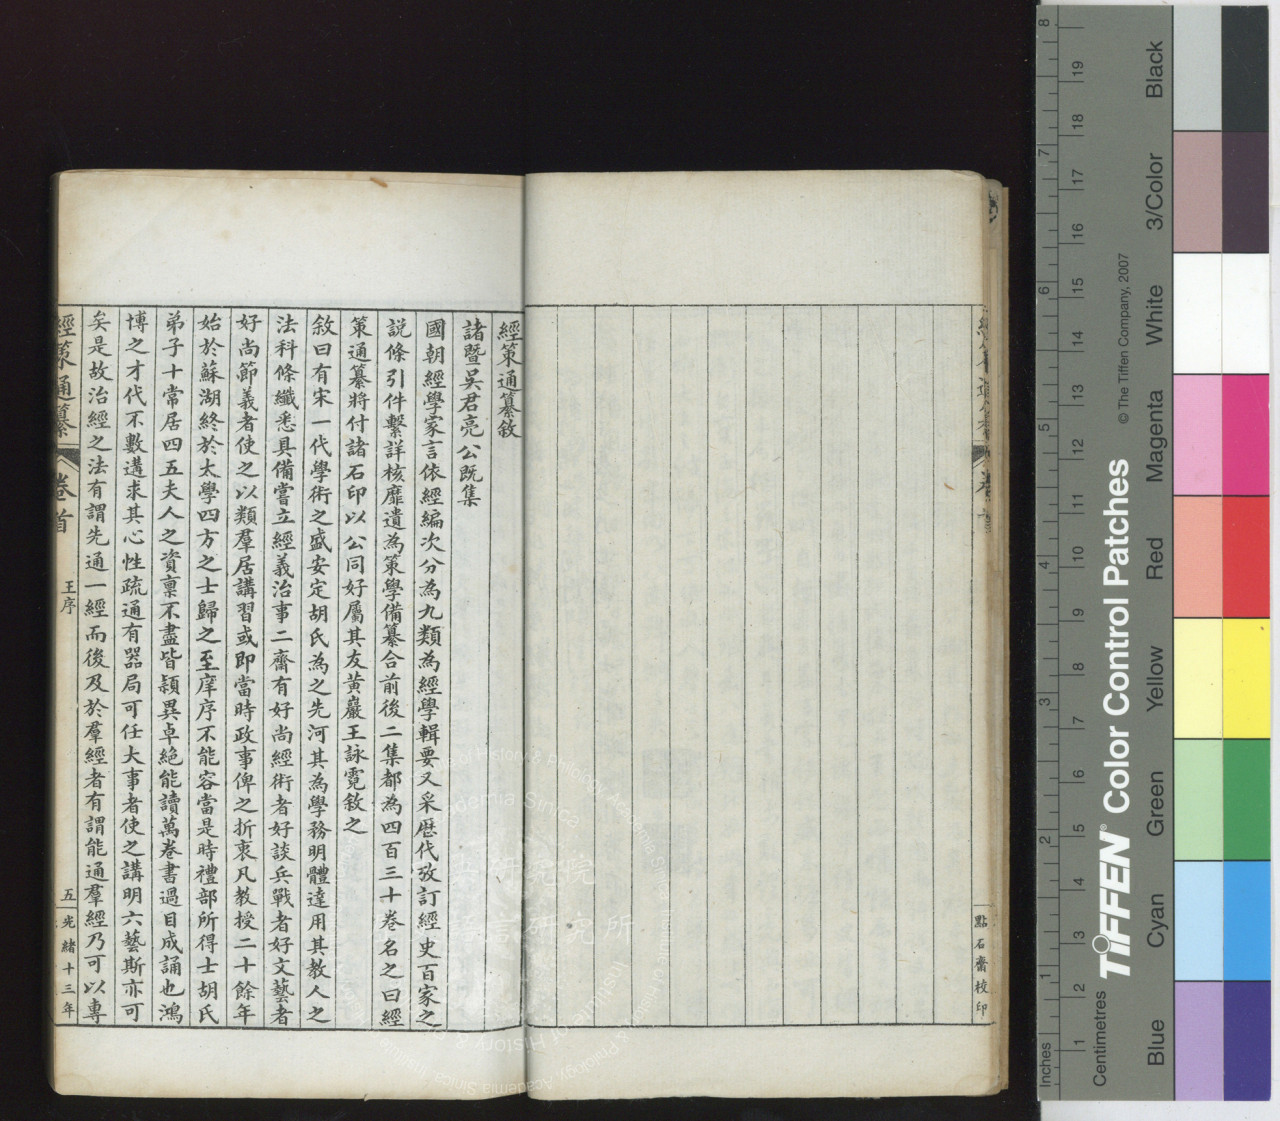 經策通纂敘
諸暨吳君亮公旣集
國朝經學家言依經編次分為九類為經學輯要又采歷代攷訂經史百家之
說條引件繫詳核靡遺為策學備纂合前後二集都為四百三十卷名之曰經
策通纂將付諸石印以公同好屬其友黃巖王詠霓敘之
敘曰有宋一代學術之盛安定胡氏為之先河其為學務明體達用其教人之
法科條纖悉具備嘗立經義治事二齋有好尚經術者好談兵戰者好文藝者
好尚節義者使之以類羣居講習或即當時政事俾之折衷凡教授二十餘年
始於蘇湖終於太學四方之士歸之至庠序不能容當是時禮部所得士胡氏
弟子十常居四五夫人之資稟不盡皆穎異卓絕能讀萬卷書過目成誦也鴻
博之才代不數遘求其心性疏通有器局可任大事者使之講明六藝斯亦可
矣是故治經之法有謂先通一經而後及於羣經者有謂能通羣經乃可以專
經策通纂 卷首 王序 五 光緒十三年
點石齋校印
TIFFEN® Color Control Patches
© The Tiffen Company, 2007
Inches
1 2 3 4 5 6 7 8
Centimetres
1 2 3 4 5 6 7 8 9 10 11 12 13 14 15 16 17 18 19
Blue Cyan Green Yellow Red Magenta White 3/Color Black